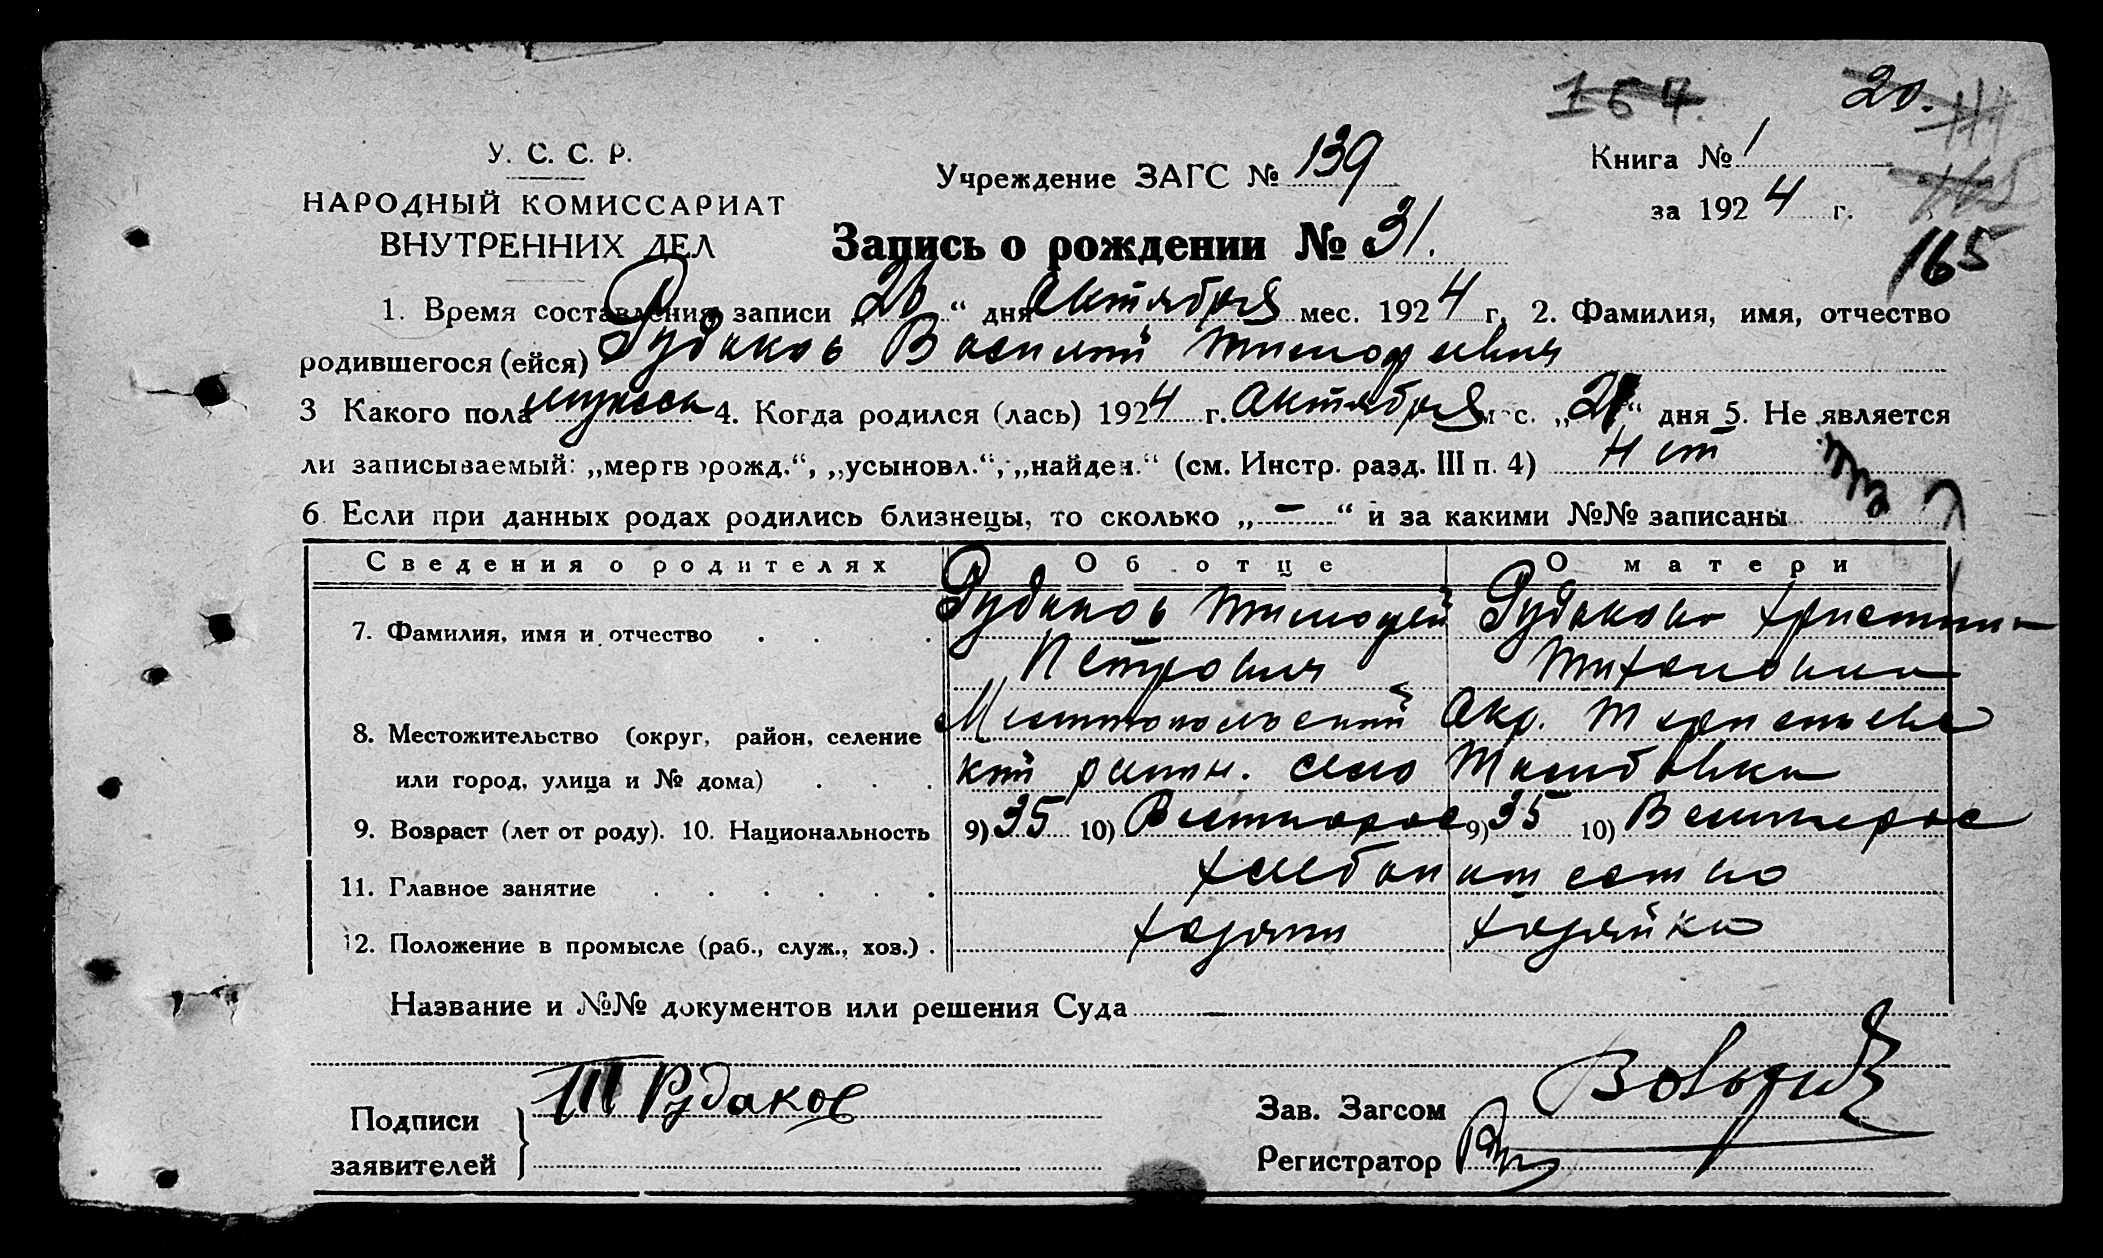 20.
У. С. С. Р.
НАРОДНЫЙ КОМИССАРИАТ
ВНУТРЕННИХ ДЕЛ
Учреждение ЗАГС № 139
Книга № 1
за 1924 г.
165
Запись о рождении № 31.
1. Время составления записи „26“ дня Октября мес. 1924 г. 2. Фамилия, имя, отчество
родившегося (ейся) Рудаков Василий Тимофеевич
3 Какого пола мужск 4. Когда родился (лась) 1924 г. Октября мес. „21“ дня 5. Не является
ли записываемый: „мертворожд.“, „усыновл.“, „найден.“ (см. Инстр. разд. III п. 4) нет
6. Если при данных родах родились близнецы, то сколько „-“ и за какими №№ записаны
Сведения о родителях Об отце О матери
7. Фамилия, имя и отчество Рудаков Тимофей Рудакова Христина
Петрович Тихоновна
8. Местожительство (округ, район, селение Мелитопольский Окр.
или город, улица и № дома) кий район. село
9. Возраст (лет от роду). 10. Национальность 9) 35 10) Великорос 9) 35 10) Великорос
11. Главное занятие хлебопашество
12. Положение в промысле (раб., служ., хоз.) хозяин хозяйка
Название и №№ документов или решения Суда
Подписи
заявителей
Т Рудаков
Зав. Загсом
Регистратор